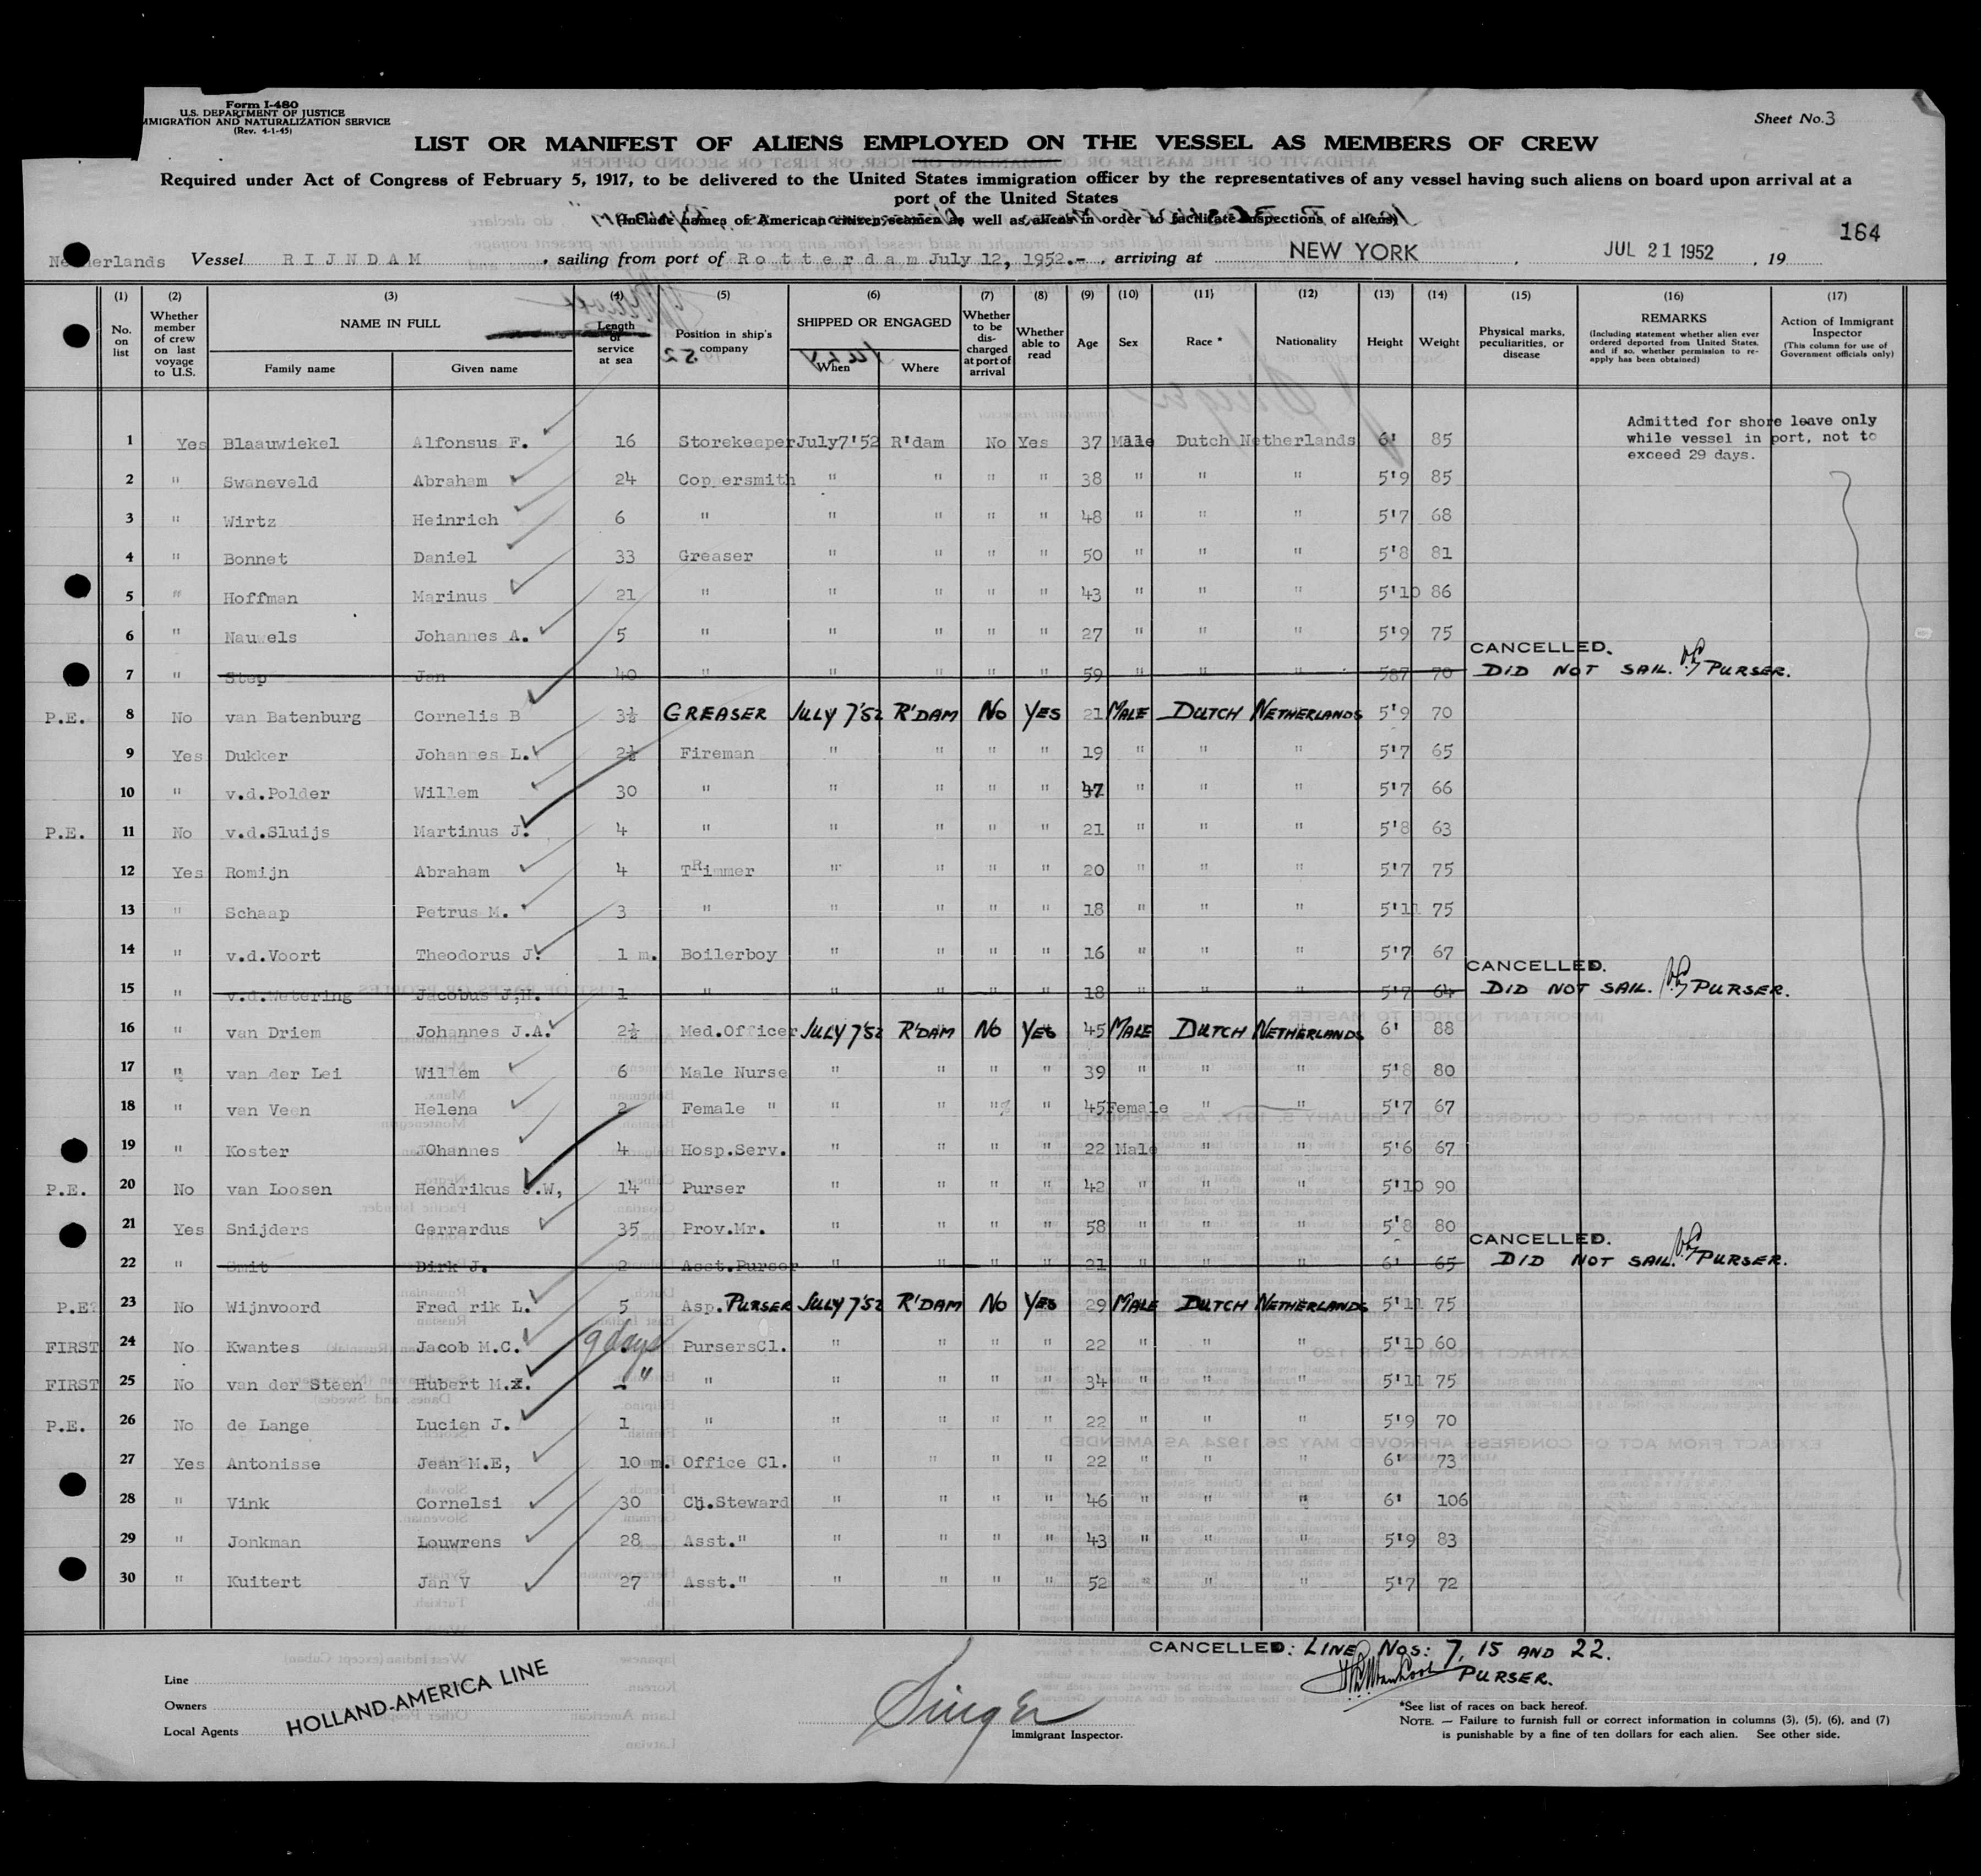 Form I-480
U.S. DEPARTMENT OF JUSTICE
IMMIGRATION AND NATURALIZATION SERVICE
(Rev. 4-1-45)
Sheet No. 3
LIST OR MANIFEST OF ALIENS EMPLOYED ON THE VESSEL AS MEMBERS OF CREW
Required under Act of Congress of February 5, 1917, to be delivered to the United States immigration officer by the representatives of any vessel having such aliens on board upon arrival at a
port of the United States
(Include names of American citizen seamen as well as aliens in order to facilitate inspections of aliens)
164
Netherlands Vessel RIJNDAM, sailing from port of Rotterdam July 12, 1952.-, arriving at NEW YORK, JUL 21 1952, 19
(1) (2) (3) (4) (5) (6) (7) (8) (9) (10) (11) (12) (13) (14) (15) (16) (17)
No. on list | Whether member of crew on last voyage to U.S. | NAME IN FULL | Family name | Given name | Length of service at sea | Position in ship's company | SHIPPED OR ENGAGED | When | Where | Whether to be discharged at port of arrival | Whether able to read | Age | Sex | Race * | Nationality | Height | Weight | Physical marks, peculiarities, or disease | REMARKS (Including statement whether alien ever ordered deported from United States, and if so, whether permission to re-apply has been obtained) | Action of Immigrant Inspector (This column for use of Government officials only)
Admitted for shore leave only
while vessel in port, not to
exceed 29 days.
1 Yes Blaauwiekel Alfonsus F. 16 Storekeeper July7'52 R'dam No Yes 37 Male Dutch Netherlands 6' 85
2 " Swaneveld Abraham 24 Coppersmith " " " " 38 " " " 5'9 85
3 " Wirtz Heinrich 6 " " " " " 48 " " " 5'7 68
4 " Bonnet Daniel 33 Greaser " " " " 50 " " " 5'8 81
5 " Hoffman Marinus 21 " " " " " 43 " " " 5'10 86
6 " Nauwels Johannes A. 5 " " " " " 27 " " " 5'9 75
CANCELLED.
7 " Step Jan 40 " " " " " 59 " " " 5'7 70 DID NOT SAIL. PURSER.
P.E. 8 No van Batenburg Cornelis B 3½ GREASER JULY 7'52 R'DAM No YES 21 MALE DUTCH NETHERLANDS 5'9 70
9 Yes Dukker Johannes L. 2½ Fireman " " " " 19 " " " 5'7 65
10 " v.d.Polder Willem 30 " " " " " 47 " " " 5'7 66
P.E. 11 No v.d.Sluijs Martinus J. 4 " " " " " 21 " " " 5'8 63
12 Yes Romijn Abraham 4 TRimmer " " " " 20 " " " 5'7 75
13 " Schaap Petrus M. 3 " " " " " 18 " " " 5'11 75
14 " v.d.Voort Theodorus J. 1 m. Boilerboy " " " " 16 " " " 5'7 67
CANCELLED.
15 " v.d.Wetering Jacobus J,H. 1 " " " " " 18 " " " 5'7 64 DID NOT SAIL. PURSER.
16 " van Driem Johannes J.A. 2½ Med.Officer JULY 7'52 R'DAM No YES 45 MALE DUTCH NETHERLANDS 6' 88
17 " van der Lei Willem 6 Male Nurse " " " " 39 " " " 5'8 80
18 " van Veen Helena 2 Female " " " " " 45 Female " " 5'7 67
19 " Koster JOhannes 4 Hosp.Serv. " " " " 22 Male " " 5'6 67
P.E. 20 No van Loosen Hendrikus J.W, 14 Purser " " " " 42 " " " 5'10 90
21 Yes Snijders Gerrardus 35 Prov.Mr. " " " " 58 " " " 5'8 80
CANCELLED.
22 " Smit Dirk J. 2 Asst.Purser " " " " 21 " " " 6' 65 DID NOT SAIL. PURSER.
P.E. 23 No Wijnvoord Fred rik L. 5 Asp. PURSER JULY 7'52 R'DAM No YES 29 MALE DUTCH NETHERLANDS 5'11 75
FIRST 24 No Kwantes Jacob M.C. 9 days PursersCl. " " " " 22 " " " 5'10 60
FIRST 25 No van der Steen Hubert M. - " " " " " " 34 " " " 5'11 75
P.E. 26 No de Lange Lucien J. 1 " " " " " 22 " " " 5'9 70
27 Yes Antonisse Jean M.E, 10 m. Office Cl. " " " " 22 " " " 6' 73
28 " Vink Cornelsi 30 Ch.Steward " " " " 46 " " " 6' 106
29 " Jonkman Louwrens 28 Asst." " " " " 43 " " " 5'9 83
30 " Kuitert Jan V 27 Asst." " " " " 52 " " " 5'7 72
CANCELLED: LINE NOS: 7, 15 AND 22.
PURSER.
Line
Owners
Local Agents
HOLLAND-AMERICA LINE
Singer
Immigrant Inspector.
*See list of races on back hereof.
NOTE. — Failure to furnish full or correct information in columns (3), (5), (6), and (7)
is punishable by a fine of ten dollars for each alien. See other side.